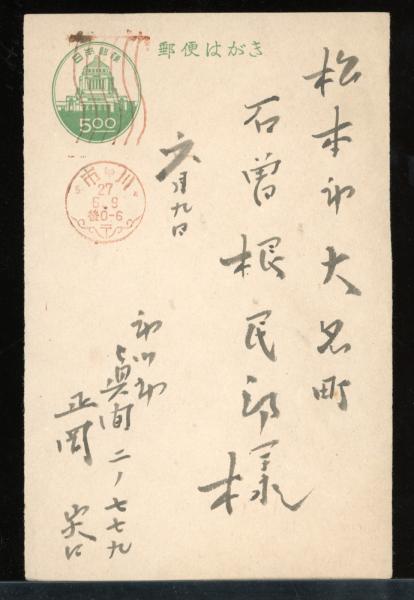 郵便はがき
日本郵便
5.00
市川
27
6.9
後0-6
〒
松本市大名町
石曽根民郎様
六月九日
市川市
真間二ノ七七九
正岡